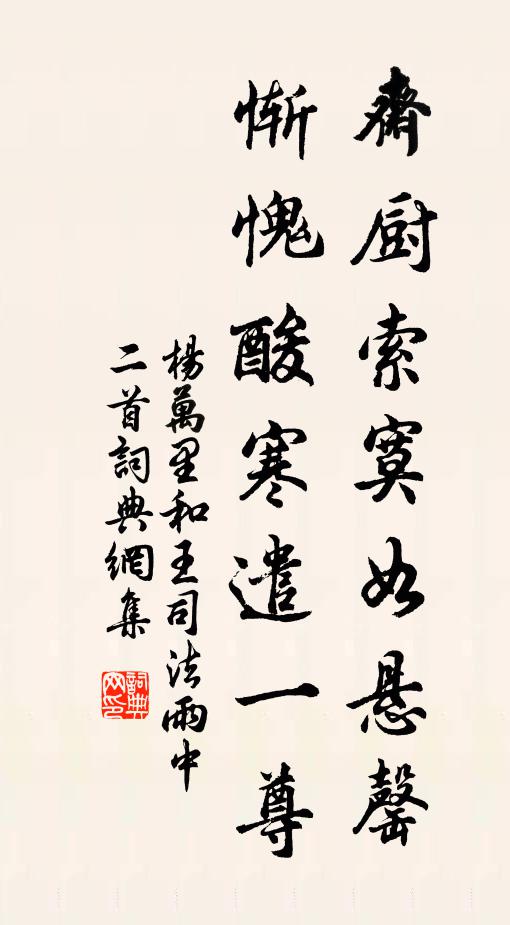 齋厨索寞如悬罄
慚愧酸寒遣一尊
楊萬里和王司法雨中
二首詞典網集
詞典网印